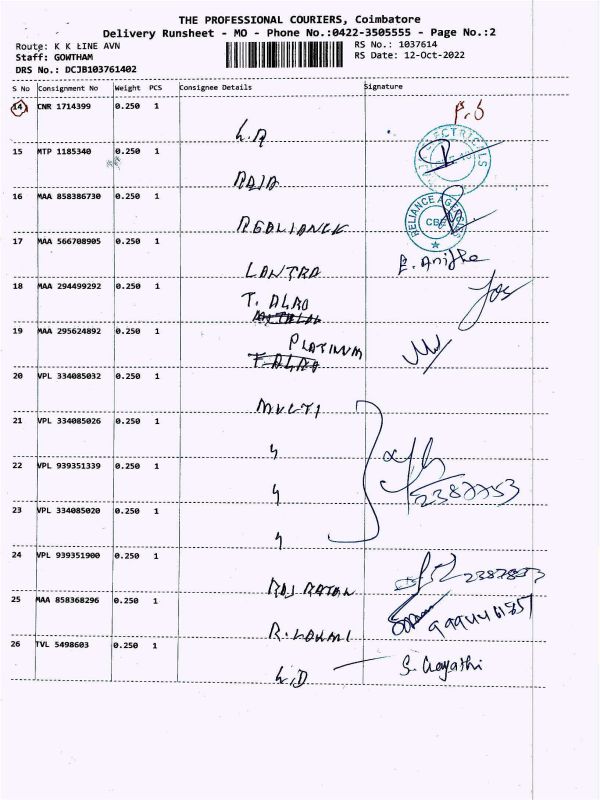 THE PROFESSIONAL COURIERS, Coimbatore
Delivery Runsheet - MO - Phone No.:0422-3505555 - Page No.:2
Route: K K LINE AVN
RS No.: 1037614
Staff: GOWTHAM
RS Date: 12-Oct-2022
DRS No.: DCJB103761402
S No Consignment No Weight PCS Consignee Details Signature
14 CNR 1714399 0.250 1
L.A
15 MTP 1185340 0.250 1
RAJA
16 MAA 858386730 0.250 1
RELIANCE AGENCIES
CBE
17 MAA 566708905 0.250 1
LANTRA
18 MAA 294499292 0.250 1
T. ALRO
19 MAA 295624892 0.250 1
PLATINUM
20 VPL 334085032 0.250 1
MULTI
21 VPL 334085026 0.250 1
22 VPL 939351339 0.250 1
2387753
23 VPL 334085020 0.250 1
24 VPL 939351900 0.250 1
RAJ RATAN
25 MAA 858368296 0.250 1
R. LAXMI
26 TVL 5498603 0.250 1
L.D
S. Gayathi